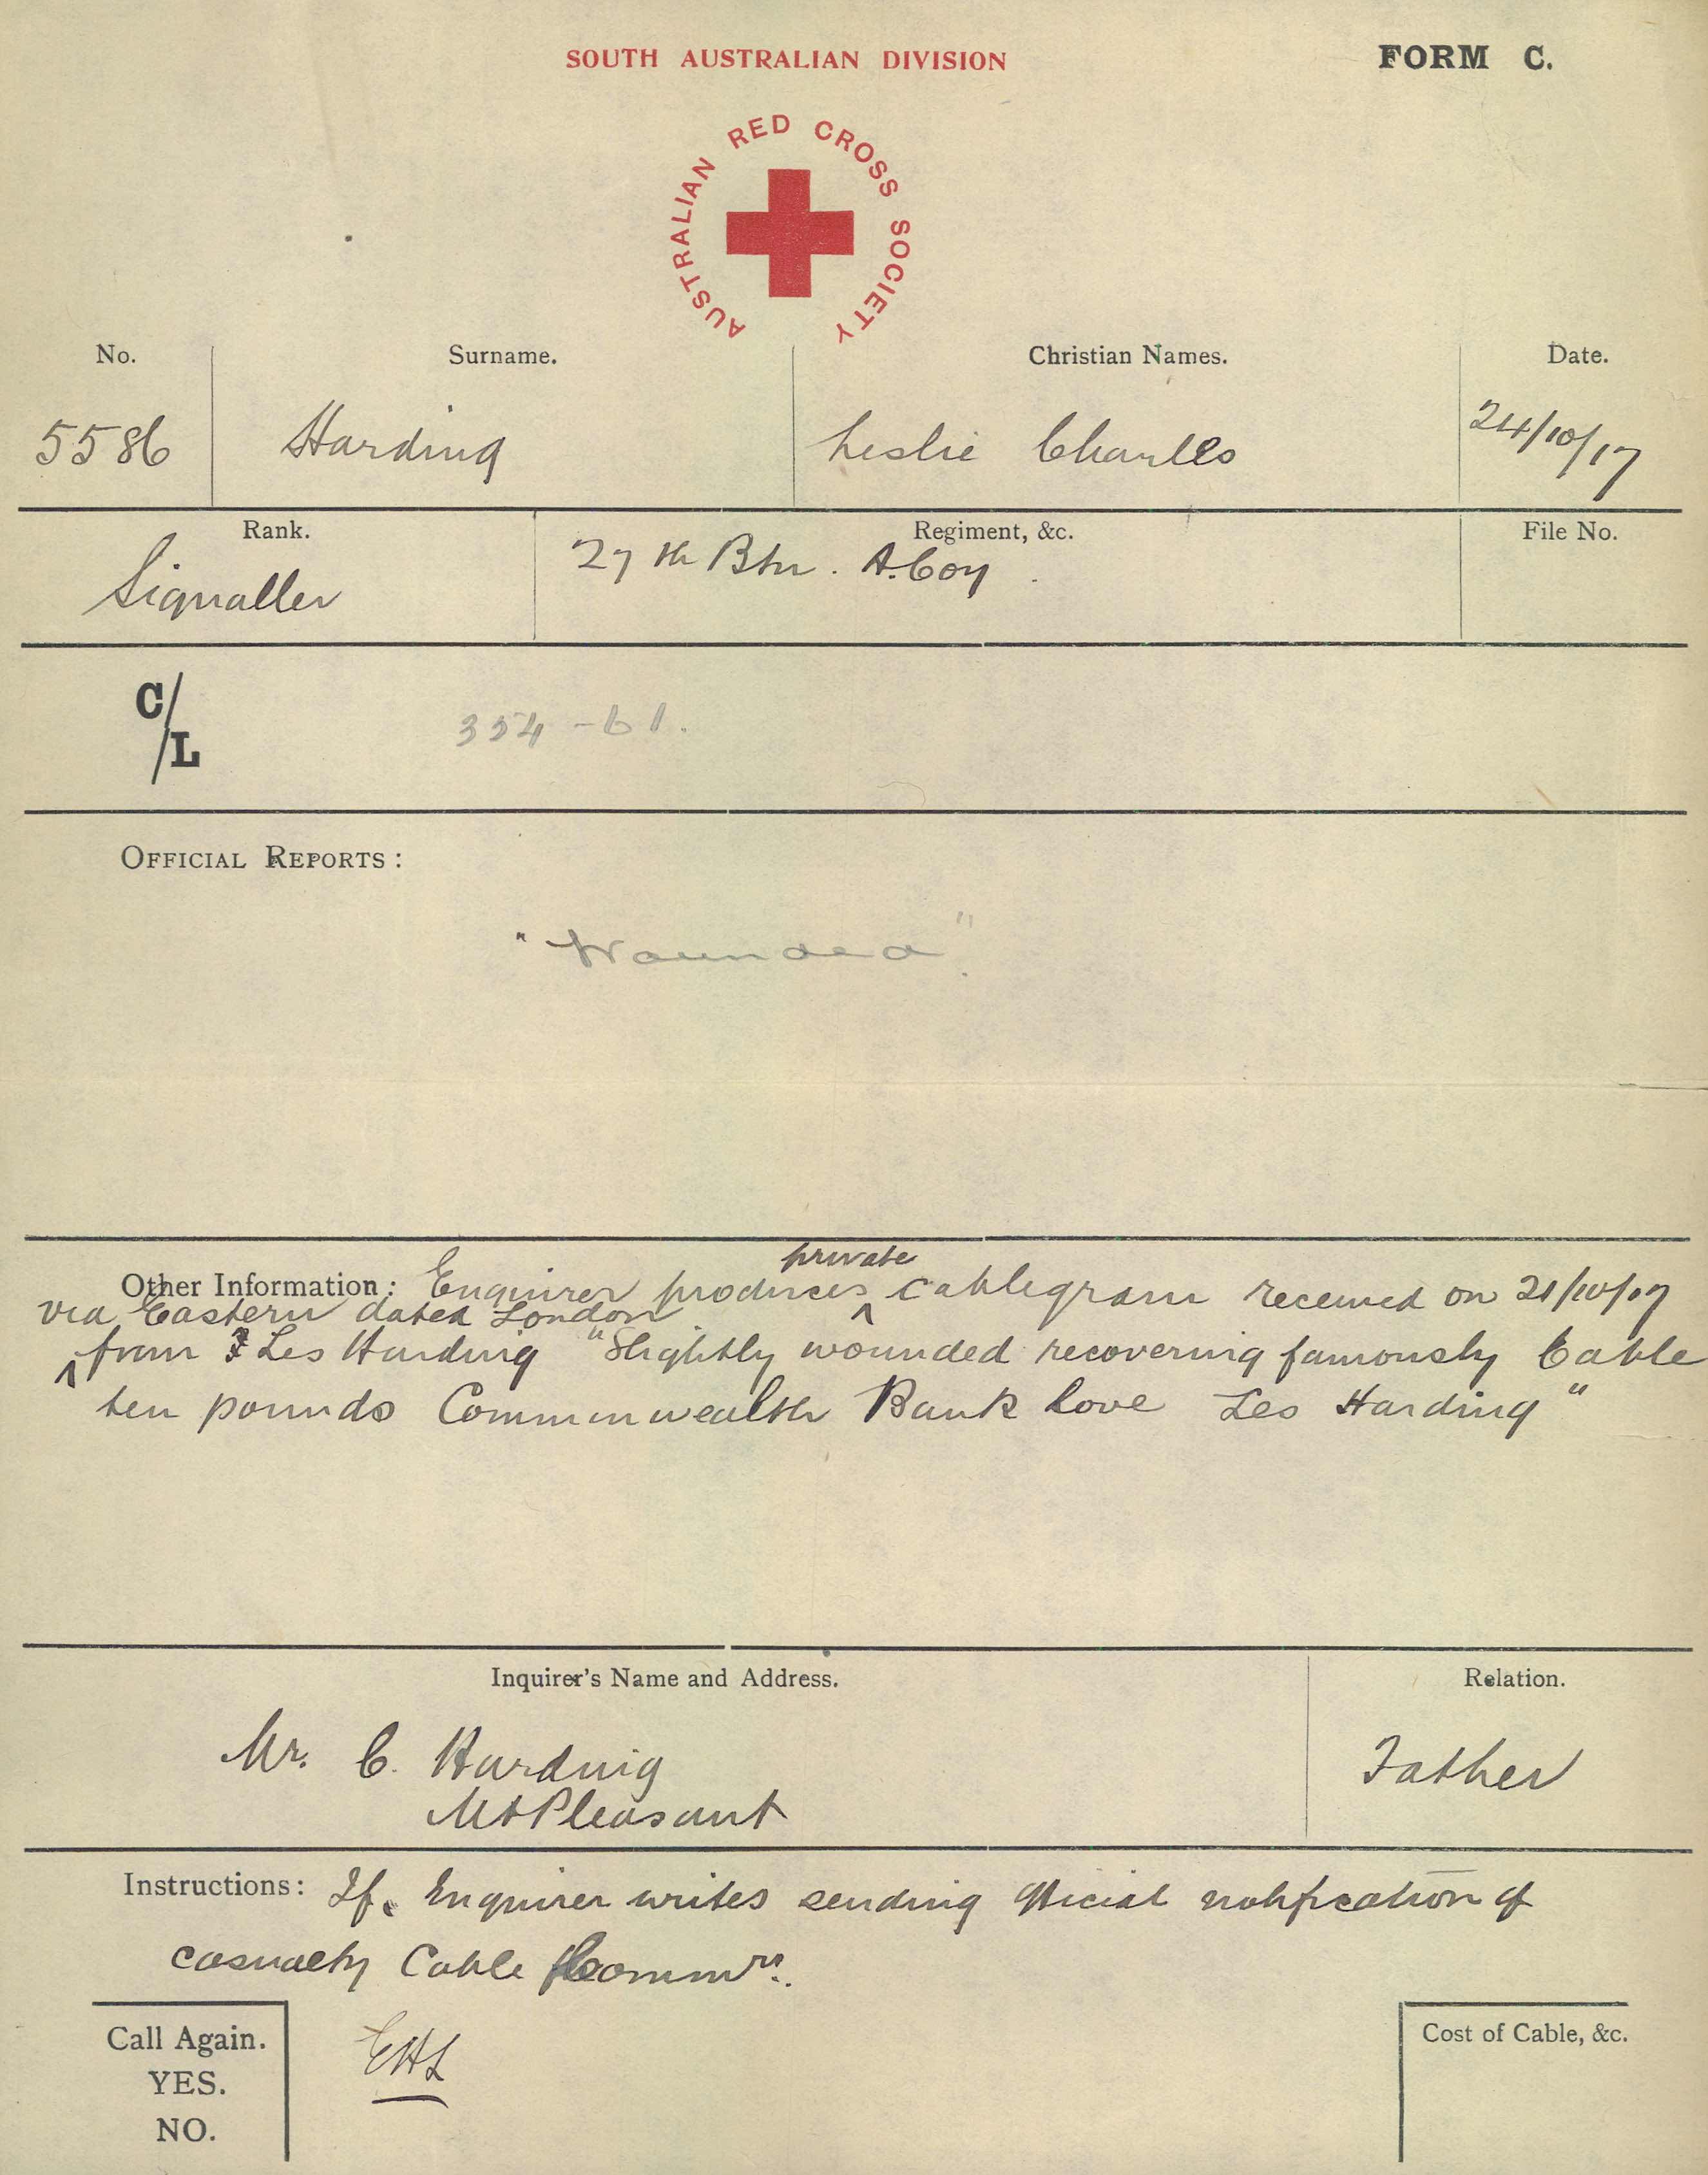 SOUTH AUSTRALIAN DIVISION
FORM C.
AUSTRALIAN RED CROSS SOCIETY
No. Surname. Christian Names. Date.
5586 Harding Leslie Charles 24/10/17
Rank. Regiment, &c. File No.
Signaller 27th Btn. A. Coy.
C/L 354-61.
OFFICIAL REPORTS:
"Wounded".
private
Other Information: Enquirer produces cablegram received on 21/10/17
via Eastern dated London
from Les Harding "Slightly wounded recovering famously Cable
ten pounds Commonwealth Bank love Les Harding"
Inquirer's Name and Address. Relation.
Mr. C. Harding Father
Mt Pleasant
Instructions: If Enquirer writes sending official notification of
casualty Cable Commrs.
Call Again. EHL Cost of Cable, &c.
YES.
NO.